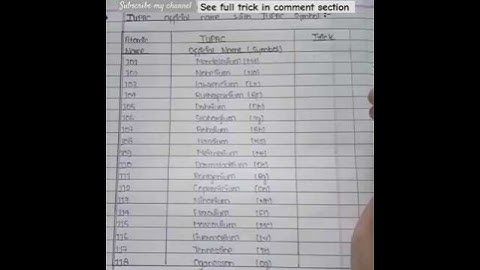 Subscribe my channel
See full trick in comment section
IUPAC official name with IUPAC Symbol :-
Atomic Name
IUPAC Official Name (Symbol)
Trick
101 Mendelevium (Md)
102 Nobelium (No)
103 Lawrencium (Lr)
104 Rutherfordium (Rf)
105 Dubnium (Db)
106 Seaborgium (Sg)
107 Bohrium (Bh)
108 Hassium (Hs)
109 Meitnerium (Mt)
110 Darmstadtium (Ds)
111 Roentgenium (Rg)
112 Copernicium (Cn)
113 Nihonium (Nh)
114 Flerovium (Fl)
115 Moscovium (Mc)
116 Livermorium (Lv)
117 Tennessine (Ts)
118 Oganesson (Og)